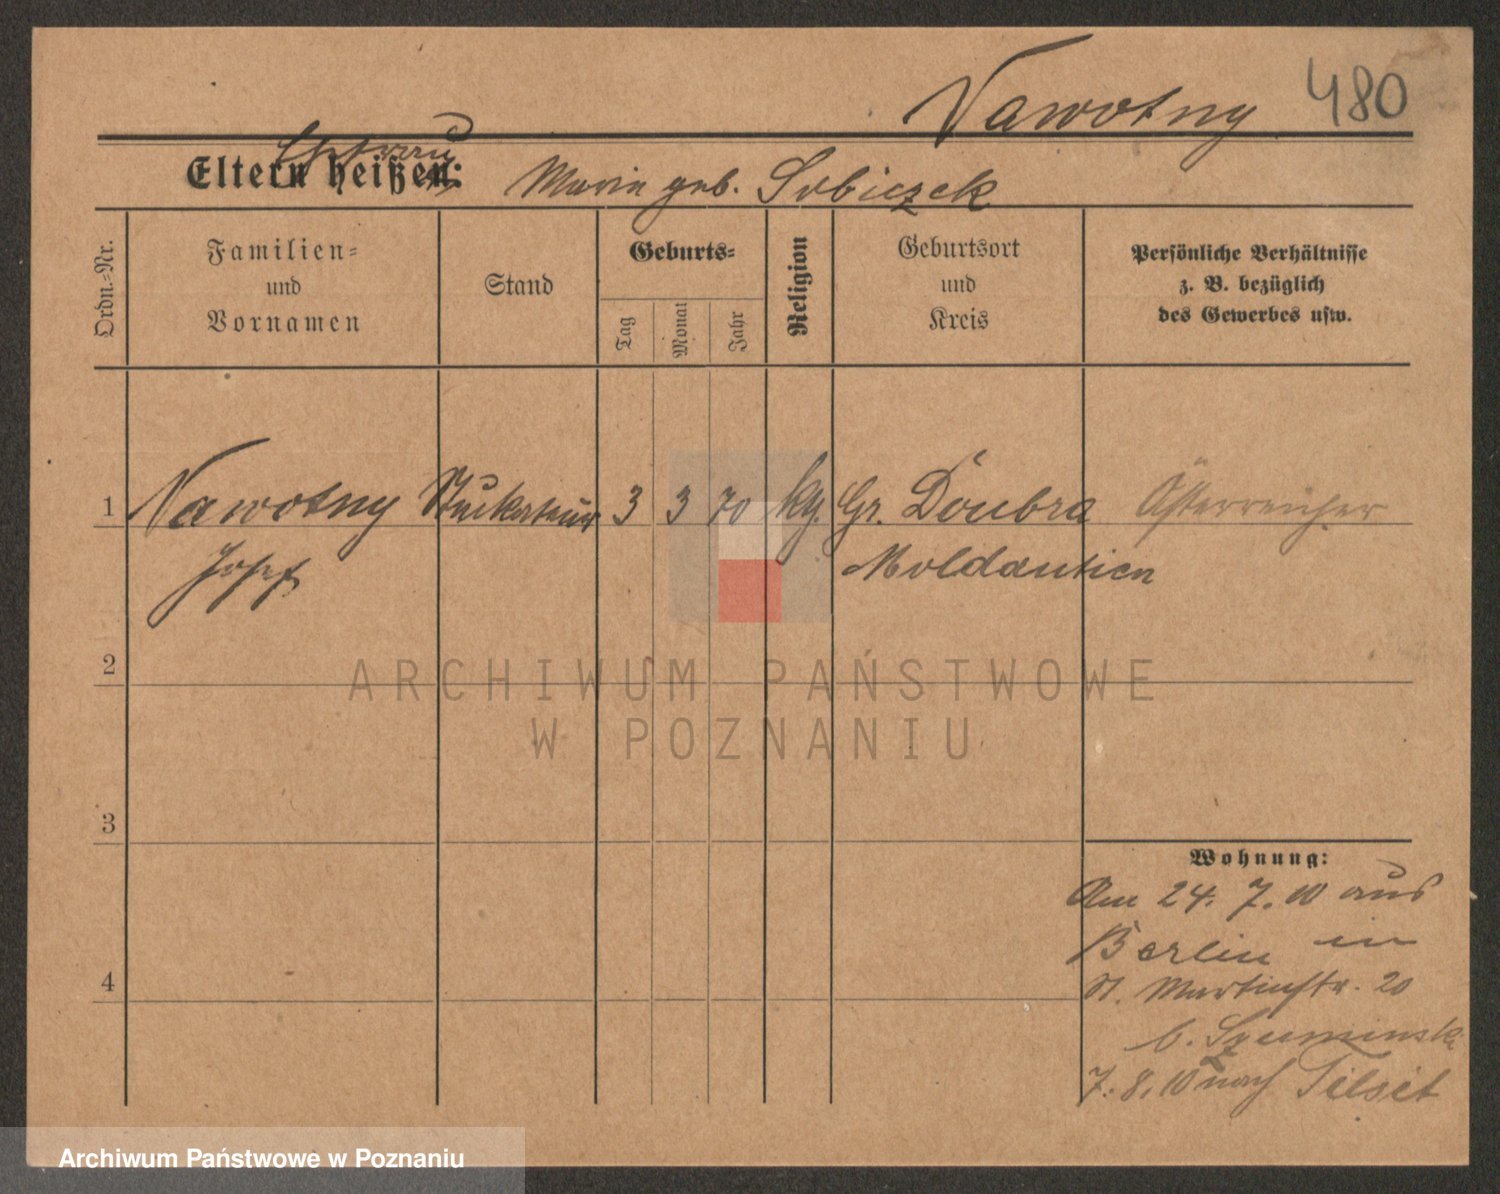 Nawotny 480
Ehefrau
Eltern heißen: Marie geb. Sobiczek
Ordn.-Nr.
Familien-
und
Vornamen
Stand
Geburts-
Tag
Monat
Jahr
Religion
Geburtsort
und
Kreis
Persönliche Verhältnisse
z. B. bezüglich
des Gewerbes usw.
1 Nawotny Stuckateur 3 3 70 kg. Gr. Doubra Österreicher
Josef Moldautien
2
ARCHIWUM PAŃSTWOWE
W POZNANIU
3
Wohnung:
Am 24. 7. 10 aus
Berlin in
4 St. Martinstr. 20
b. Szuminski
7. 8. 10 nach Tilsit
Archiwum Państwowe w Poznaniu